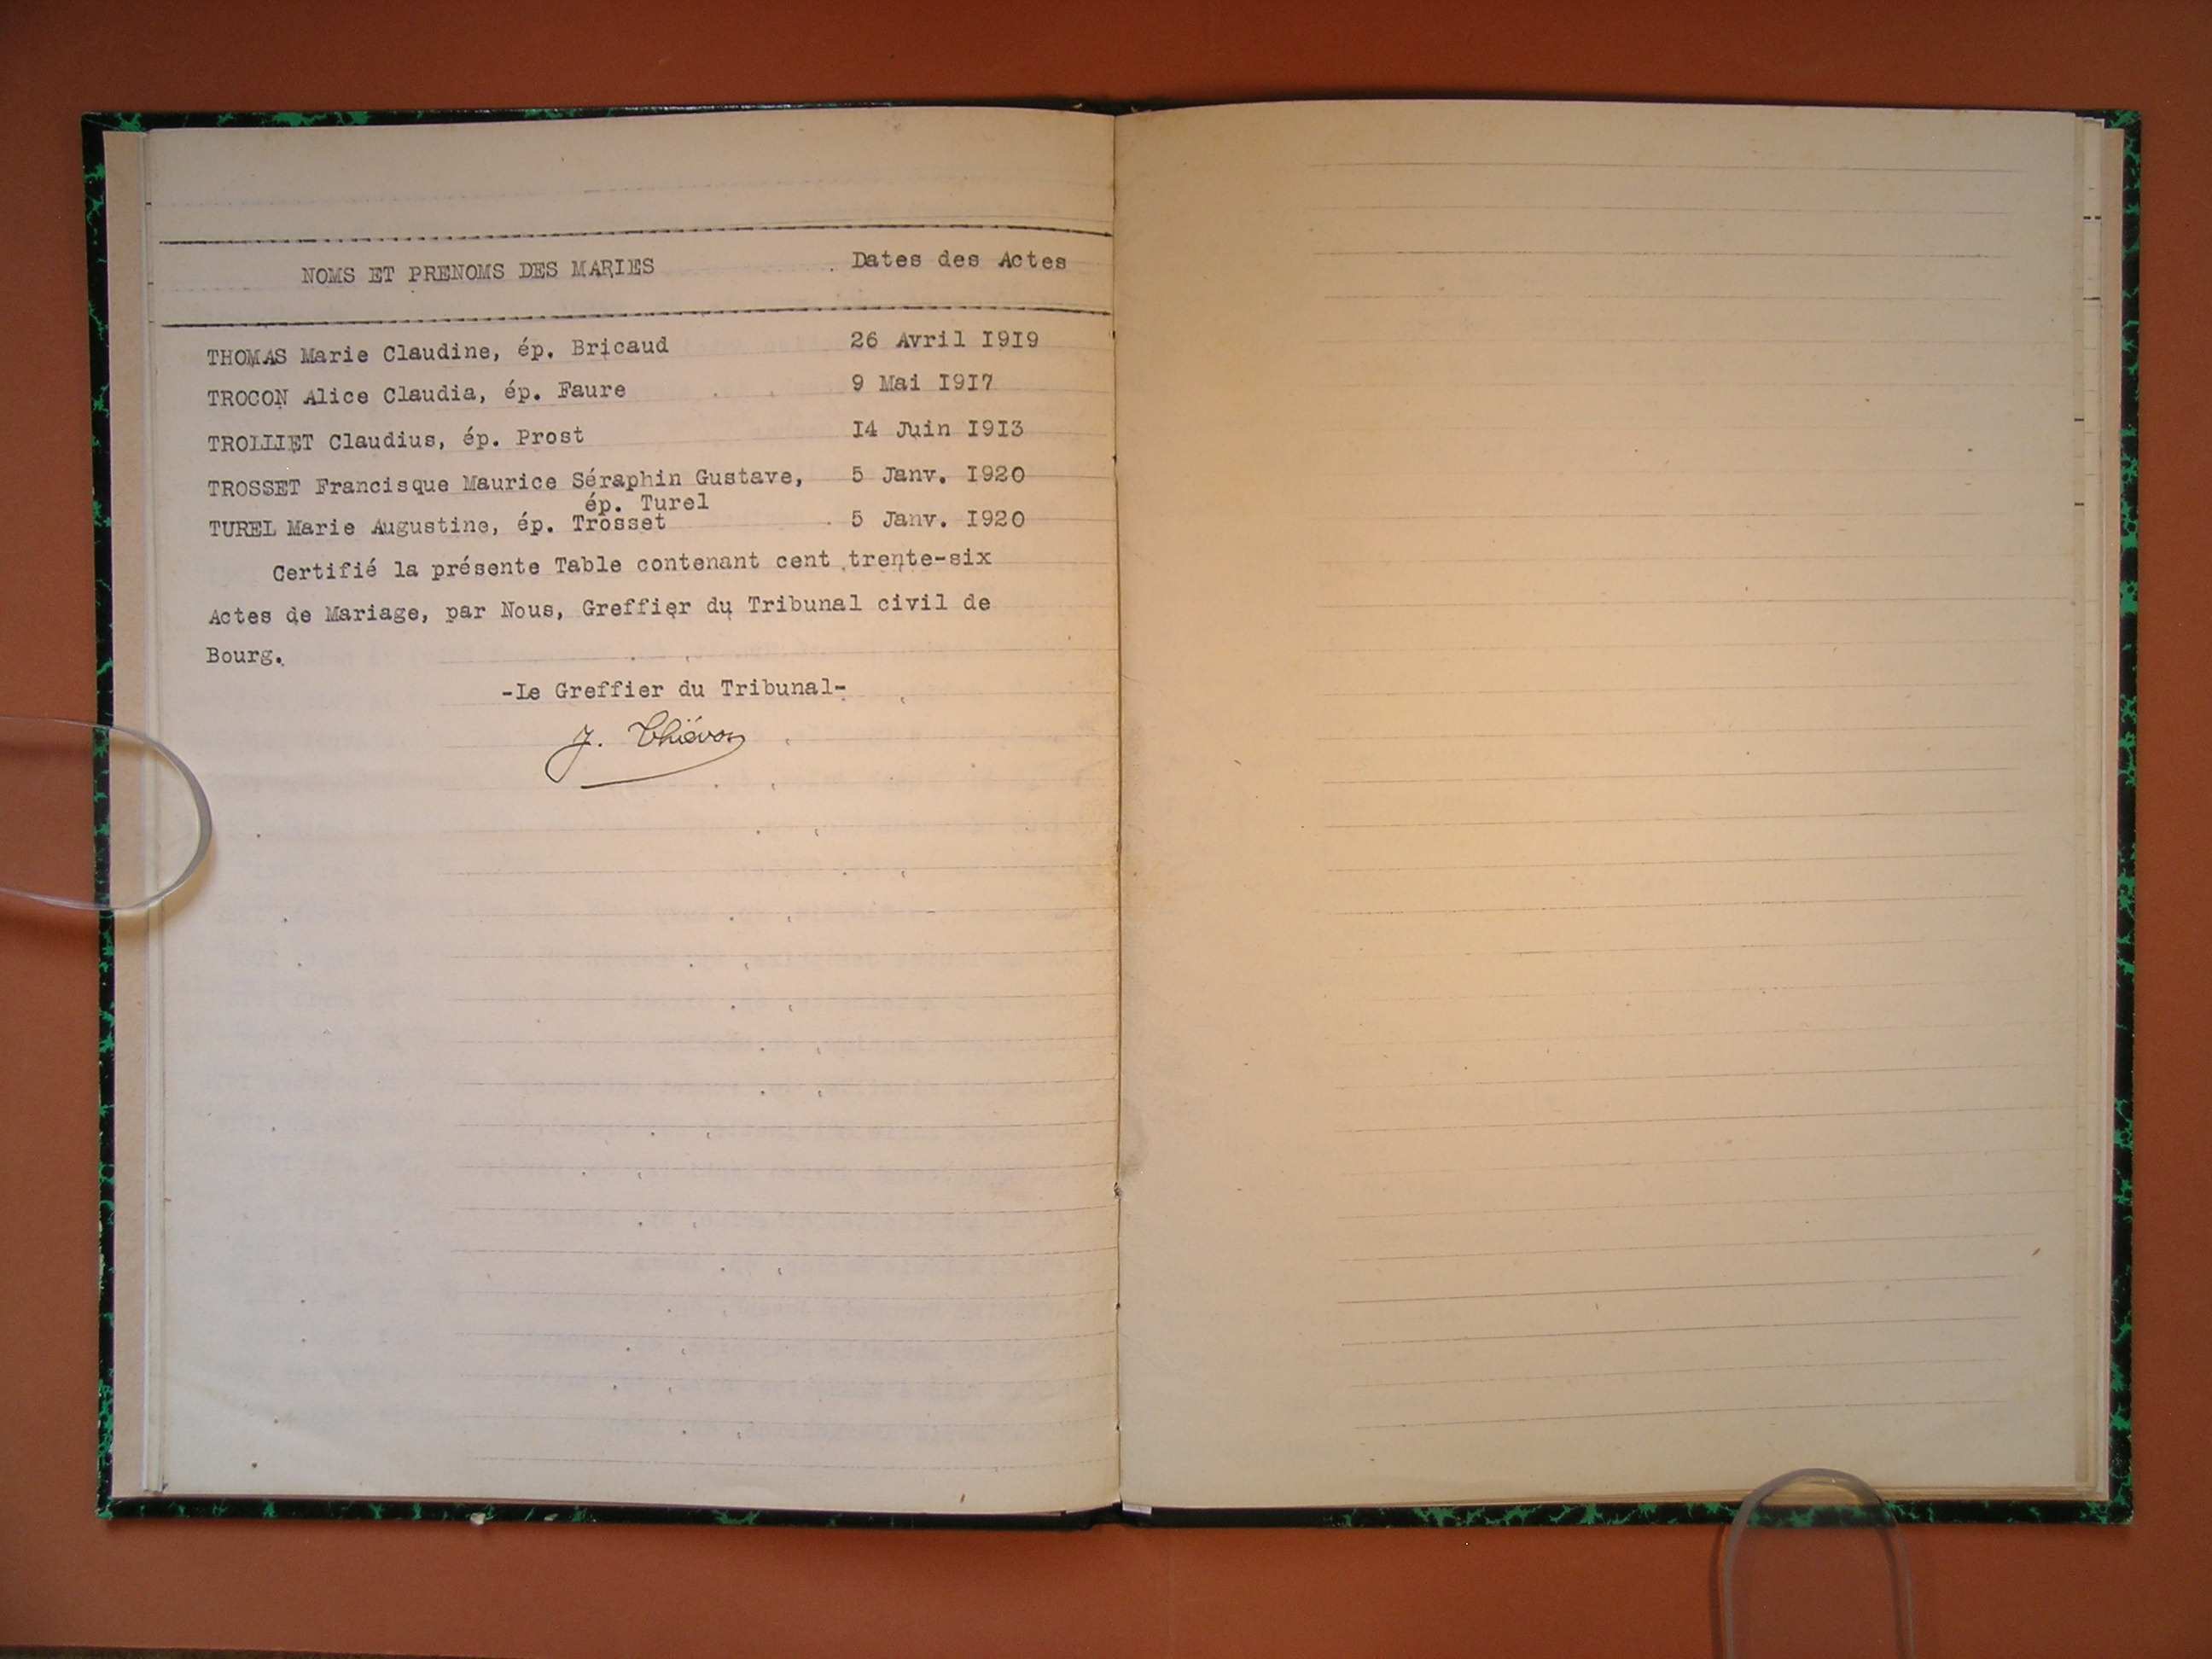 NOMS ET PRENOMS DES MARIES Dates des Actes
THOMAS Marie Claudine, ép. Bricaud 26 Avril I9I9
TROCON Alice Claudia, ép. Faure 9 Mai I9I7
TROLLIET Claudius, ép. Prost I4 Juin I9I3
TROSSET Francisque Maurice Séraphin Gustave, 5 Janv. I920
ép. Turel
TUREL Marie Augustine, ép. Trosset 5 Janv. I920
Certifié la présente Table contenant cent trente-six
Actes de Mariage, par Nous, Greffier du Tribunal civil de
Bourg.
-Le Greffier du Tribunal-
J. Thiévon